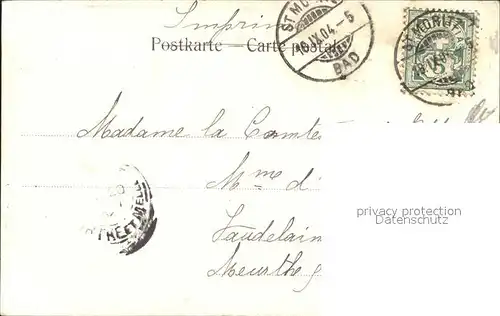 Imprim
Postkarte — Carte postale
ST. MORITZ
18.IX.04.-5
BAD
ST. MORITZ
BAD
5
Madame la Comtes
Mme d
Vaudelain
Meurthe
privacy protection
Datenschutz